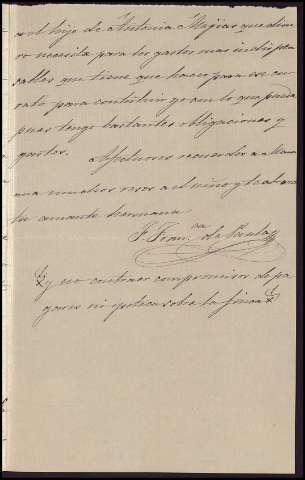 es el hijo de Antonia Mejias que dine
ro necesita para los gastos mas indispen
sables que tiene que hacer para su cu
rato para contribuir yo con lo que pueda
pues tengo bastantes obligaciones y
gastos. Afectuosos recuerdos a Mama
una muchos besos a el niño y te abraza
tu amante hermana
F. Franca de Paula
y no contraer compromisos de pa
gares ni ipoteca sobre la finca